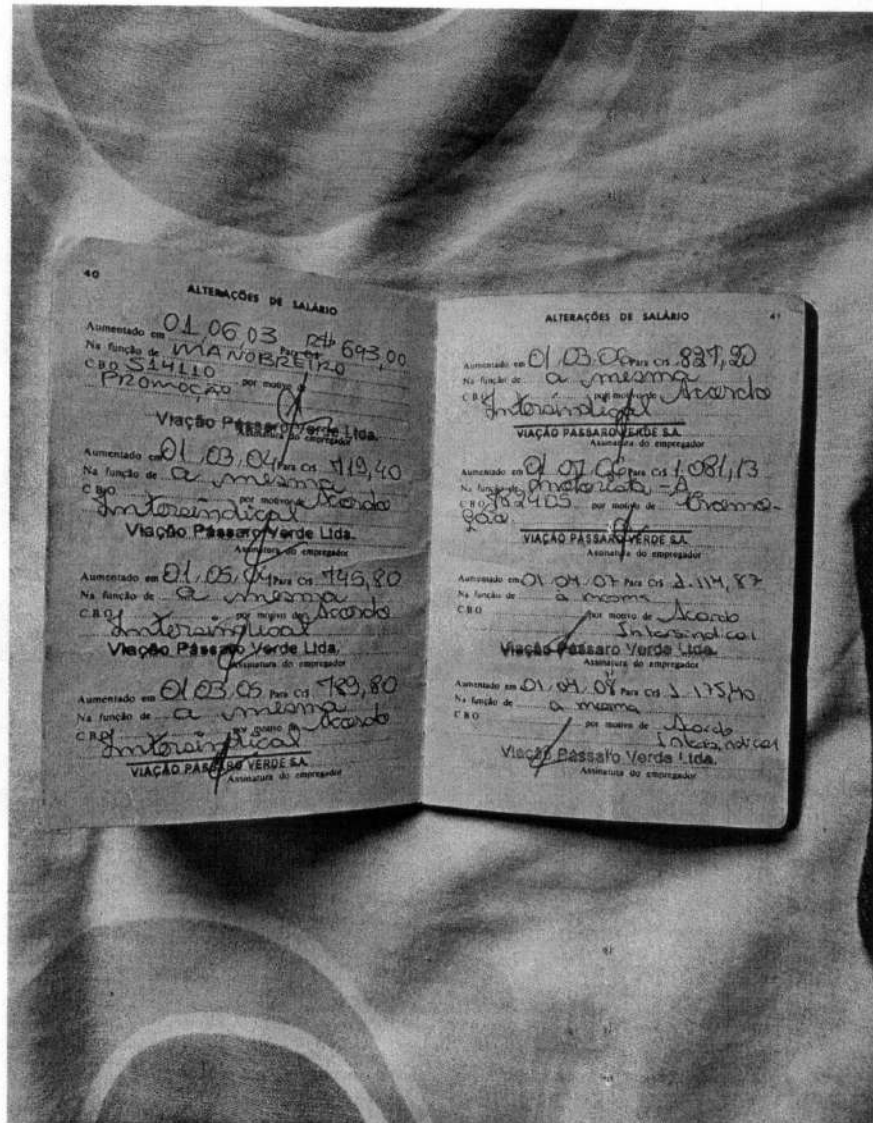 40
ALTERAÇÕES DE SALÁRIO
Aumentado em 01.06.03 Para R$ 693,00
Na função de MANOBREIRO
C B O 514110 por motivo de
Promoção
Viação Pássaro Verde Ltda.
Assinatura do empregador
Aumentado em 01.03.04 Para Cr$ 719,40
Na função de a mesma
C B O por motivo de Acordo
Intersindical
Viação Pássaro Verde Ltda.
Assinatura do empregador
Aumentado em 01.05.04 Para Cr$ 745,80
Na função de a mesma
C B O por motivo de Acordo
Intersindical
Viação Pássaro Verde Ltda.
Assinatura do empregador
Aumentado em 01.03.05 Para Cr$ 789,80
Na função de a mesma
C B O por motivo de Acordo
Intersindical
VIAÇÃO PÁSSARO VERDE S.A.
Assinatura do empregador
ALTERAÇÕES DE SALÁRIO 41
Aumentado em 01.03.06 Para Cr$ 827,20
Na função de a mesma
C B O por motivo de Acordo
Intersindical
VIAÇÃO PÁSSARO VERDE S.A.
Assinatura do empregador
Aumentado em 01.07.06 Para Cr$ 1.081,13
Na função de motorista - A
C B O 782405 por motivo de Promo-
ção
VIAÇÃO PÁSSARO VERDE S.A.
Assinatura do empregador
Aumentado em 01.04.07 Para Cr$ 1.114,87
Na função de a mesma
C B O por motivo de Acordo
Intersindical
Viação Pássaro Verde Ltda.
Assinatura do empregador
Aumentado em 01.04.08 Para Cr$ 1.175,40
Na função de a mesma
C B O por motivo de Acordo
Intersindical
Viação Pássaro Verde Ltda.
Assinatura do empregador